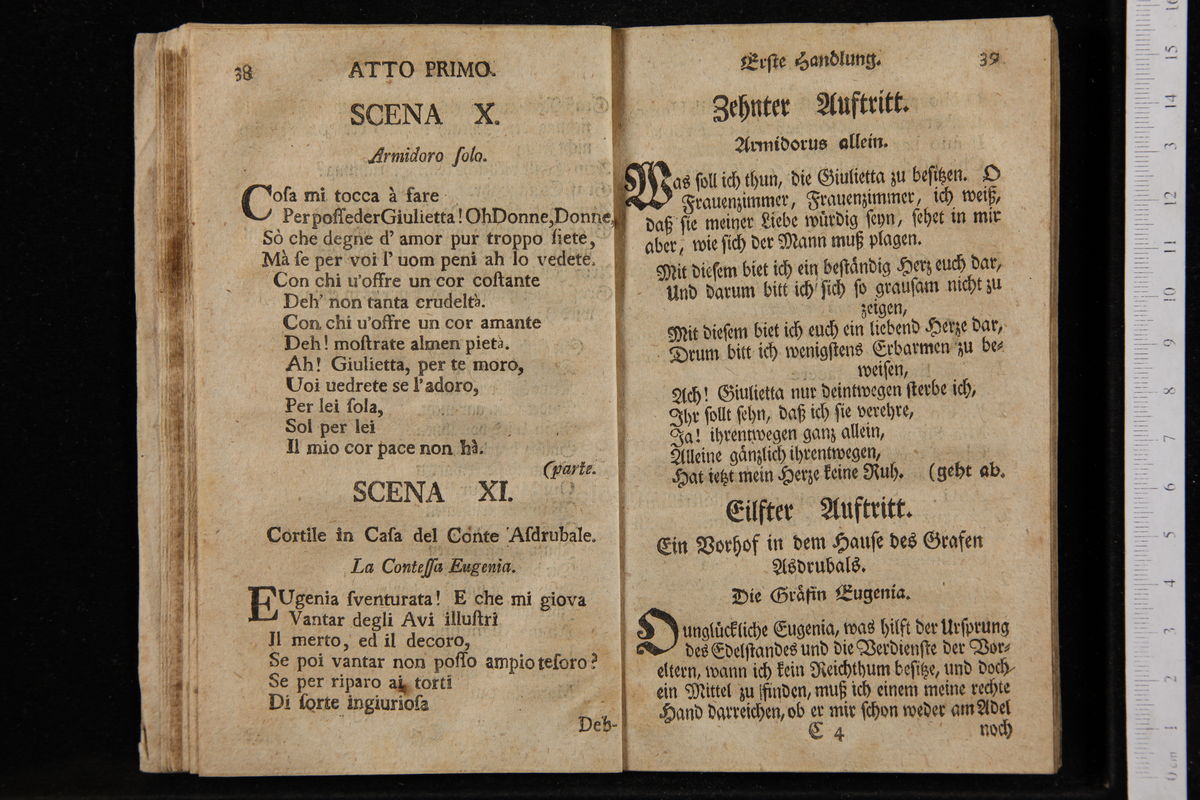 38
ATTO PRIMO.
SCENA X.
Armidoro ſolo.
Coſa mi tocca à fare
Per poſſeder Giulietta! Oh Donne, Donne,
Sò che degne d' amor pur troppo ſiete,
Mà ſe per voi l' uom peni ah lo vedete.
Con chi u'offre un cor coſtante
Deh' non tanta crudeltà.
Con chi u'offre un cor amante
Deh! moſtrate almen pietà.
Ah! Giulietta, per te moro,
Uoi uedrete se l'adoro,
Per lei ſola,
Sol per lei
Il mio cor pace non hà.
(parte.
SCENA XI.
Cortile in Caſa del Conte Aſdrubale.
La Conteſſa Eugenia.
EUgenia ſventurata! E che mi giova
Vantar degli Avi illuſtri
Il merto, ed il decoro,
Se poi vantar non poſſo ampio teſoro?
Se per riparo ai torti
Di ſorte ingiurioſa
Deb-
Erſte Handlung.
39
Zehnter Auftritt.
Armidorus allein.
Was ſoll ich thun, die Giulietta zu beſitzen. O
Frauenzimmer, Frauenzimmer, ich weiß,
daß ſie meiner Liebe würdig ſeyn, ſehet in mir
aber, wie ſich der Mann muß plagen.
Mit dieſem biet ich ein beſtändig Herz euch dar,
Und darum bitt ich ſich ſo grauſam nicht zu
zeigen,
Mit dieſem biet ich euch ein liebend Herze dar,
Drum bitt ich wenigſtens Erbarmen zu be-
weiſen,
Ach! Giulietta nur deintwegen ſterbe ich,
Ihr ſollt ſehn, daß ich ſie verehre,
Ja! ihrentwegen ganz allein,
Alleine gänzlich ihrentwegen,
Hat ietzt mein Herze keine Ruh. (geht ab.
Eilfter Auftritt.
Ein Vorhof in dem Hauſe des Grafen
Asdrubals.
Die Gräfin Eugenia.
O unglückliche Eugenia, was hilft der Urſprung
des Edelſtandes und die Verdienſte der Vor-
eltern, wann ich kein Reichthum beſitze, und doch
ein Mittel zu finden, muß ich einem meine rechte
Hand darreichen, ob er mir ſchon weder am Adel
C 4
noch
0 cm 1 2 3 4 5 6 7 8 9 10 11 12 13 14 15 16